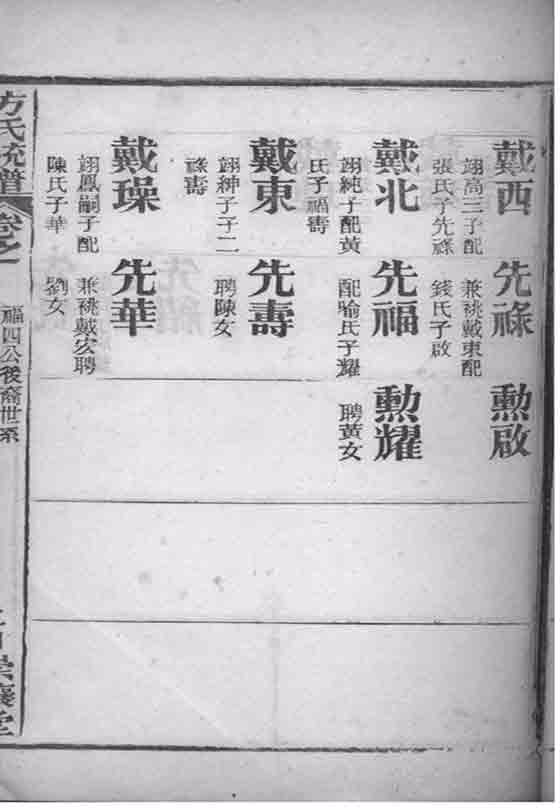 戴西
翊高三子配
張氏子先祿
戴北
翊純子配黃
氏子福壽
戴東
翊紳子子二
祿壽
戴璪
翊鳳嗣子配
陳氏子華
先祿
兼祧戴東配
錢氏子啟
先福
配喻氏子耀
先壽
聘陳女
先華
兼祧戴宏聘
劉女
勲啟
勲耀
聘黃女
方氏統譜
卷之
福四公後裔世系
崇讓堂